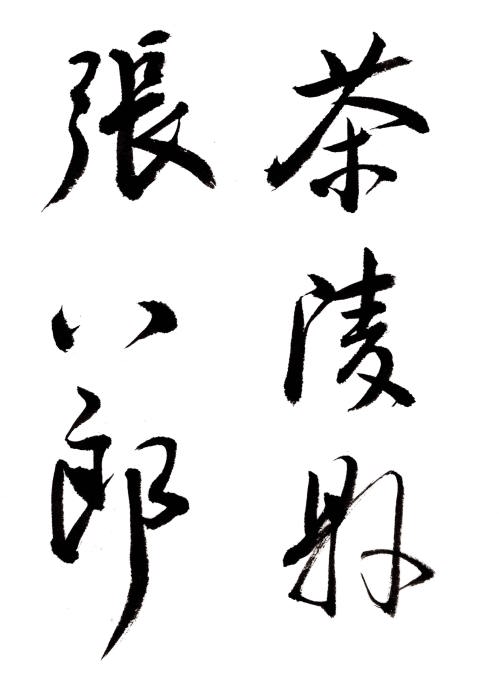 茶陵縣
張八郎